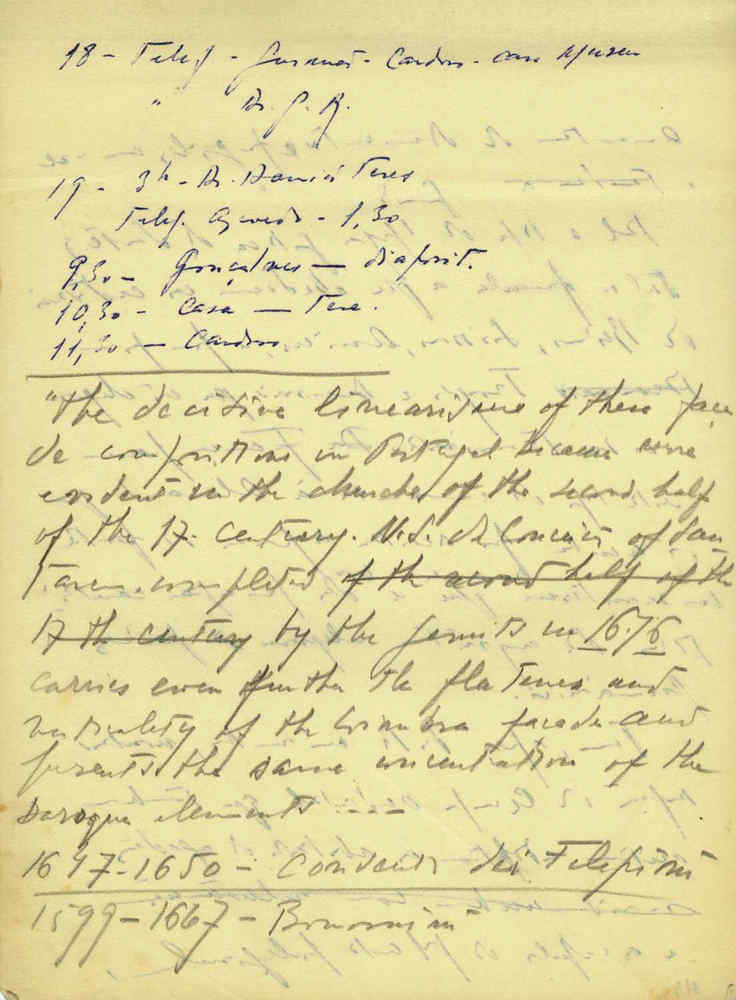 18 - Telef - - Cardoso - casa
" Dr. P. R.
19 - 3h - Dr. Teres
Telef. Azevedo - 1,30
9,30 - Gonçalves - diaposit.
10,30 - Casa - Tere.
11,30 - Cardoso
"The decisive linearisme of these faça
de compositions in Portugal became more
evident in the churches of the second half
of the 17. century. N.S. da Conceição of San
tarem completed of the second half of the
17 th century by the Jesuits in 1676
carries even further the flatenes and
verticality of the Coimbra facade and
presents the same concentration of the
baroque elements ----
1647-1650 - Convento dei Filipini
1599-1667 - Borromini